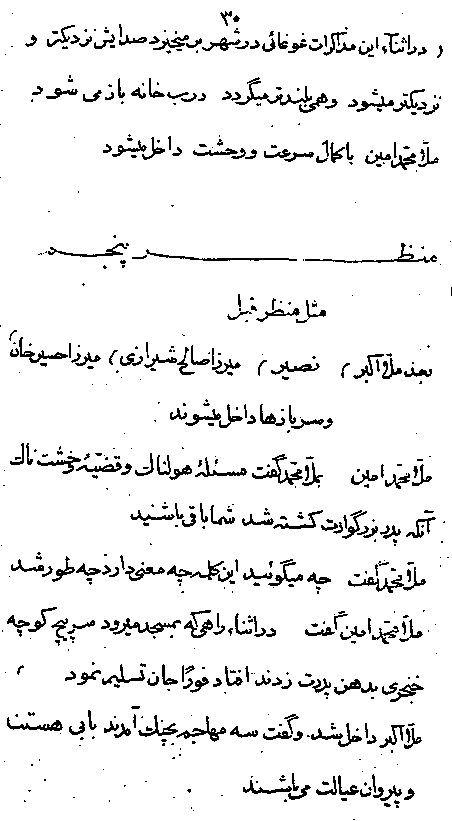 ۳۰
در اثناء این مذاکرات غوغائی در شهر بر میخیزد صدایش نزدیکتر و
نزدیکتر میشود و همی بلندتر میگردد درب خانه باز می شود
ملا محمد امین با کمال سرعت و وحشت داخل میشود
منظر پنجم
مثل منظر قبل
بعد ملا اکبر، نصیر، میرزا صالح شیرازی، میرزا حسین خان
و سربازها داخل میشوند
ملا محمد امین بملا محمد گفت مسئلهٔ هولناک و قضیهٔ وحشت ناک
آنکه پدر بزرگوارت کشته شد شما باقی باشید
ملا محمد گفت چه میگوئید این کلمه چه معنی دارد چه طور شد
ملا محمد امین گفت در اثناء راهی که بمسجد میرود سر پیچ کوچه
خنجری بدهن پدرت زدند افتاد فوراً جان تسلیم نمود
ملا اکبر داخل شد. و گفت سه مهاجم بچنک آمدند بابی هستند
و پیروان عیالت می باشند